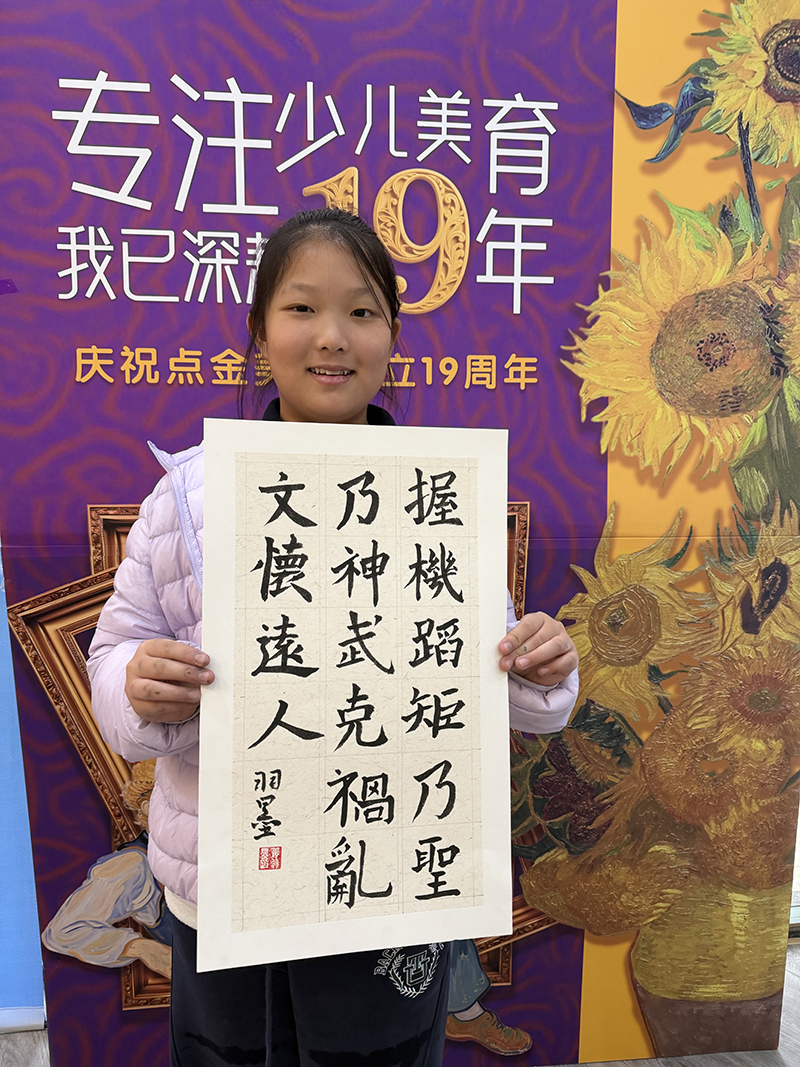 专注少儿美育
我已深耕19年
庆祝点金
立19周年
握機蹈矩乃聖
乃神武克禍亂
文懷遠人
羽墨